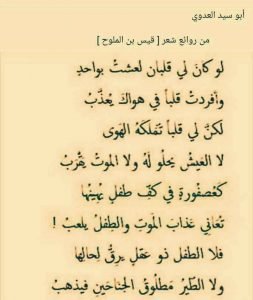 أبو سيد العدوي
من روائع شعر [ قيس بن الملوح ]
لو كانَ لي قلبان لعشتُ بواحدٍ
وأفردتُ قلباً في هواكَ يُعذَّبُ
لكنَّ لي قلباً تملّكَهُ الهوى
لا العيشُ يحلُو لَهُ ولا الموتُ يقْرَبُ
كعصفورةٍ في كفِّ طفلٍ يُهينُها
تُعَاني عَذابَ الموتِ والطفلُ يلعبُ !
فلا الطفل ذو عقلٍ يرِقُّ لحالِها
ولا الطّيرُ مَطلوقُ الجنَاحَينِ فيذهبُ